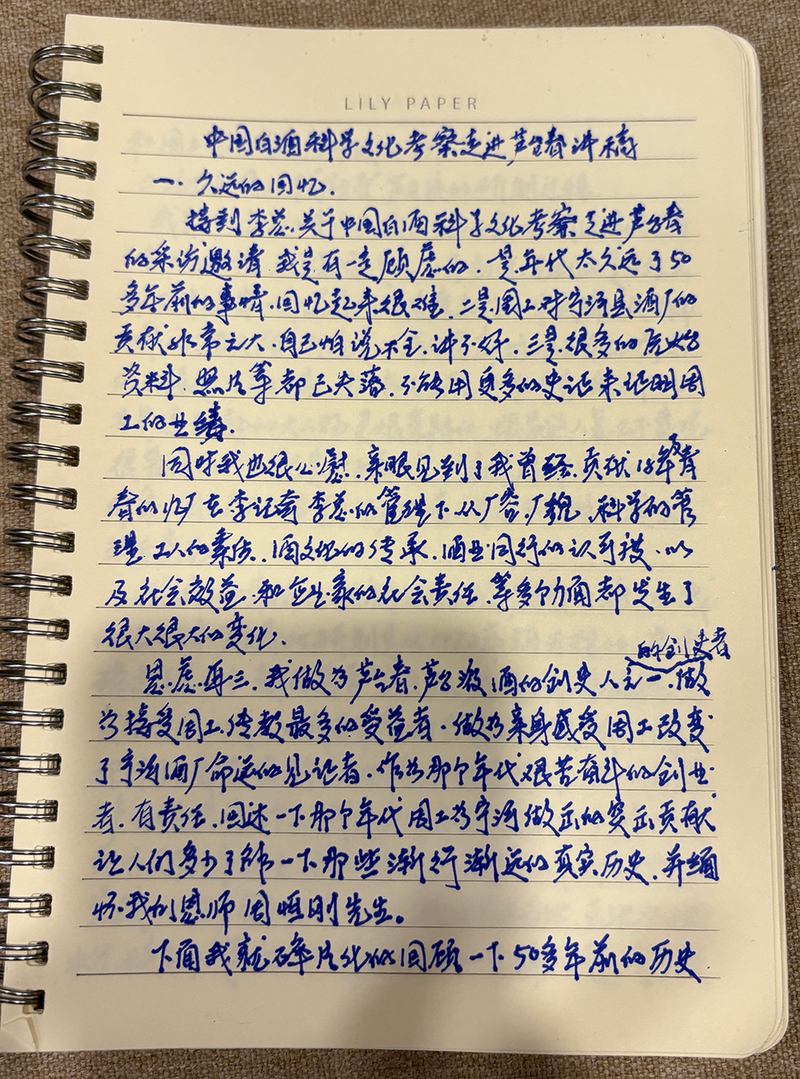 LILY PAPER
中国白酒科学文化考察走进芦台春讲稿
一、久远的回忆.
接到李总关于中国白酒科学文化考察走进芦台春
的采访邀请 我是有一定顾虑的. 一是年代太久远了50
多年前的事情.回忆起来很难. 二是周工对宁河县酒厂的
贡献非常之大.自己怕说不全.讲不好. 三是很多的原始
资料.照片等都已失落.不能用更多的史证来证明周
工的业绩.
同时我也很心慰.亲眼见到了我曾经贡献18年青
春的酒厂在李记奇 李总的管理下.从厂容.厂貌.科学的管
理 工人的素质.酒文化的传承.酒业同行的认可.以
及社会效益和企业家的社会责任.等多方面都发生了
很大很大的变化.
的创史者
思.虑.再三.我做为芦台春.芦台浓酒的创史人之一.做
为接受周工传教最多的受益者.做为亲身感受周工改变
了宁河酒厂命运的见证者.作为那个年代艰苦奋斗的创业
者.有责任.回述一下那个年代周工为宁河做出的突出贡献.
让人们多少了解一下那些渐行渐远的真实历史.并缅
怀我们恩师周恒刚先生。
下面我就碎片化的回顾一下50多年前的历史